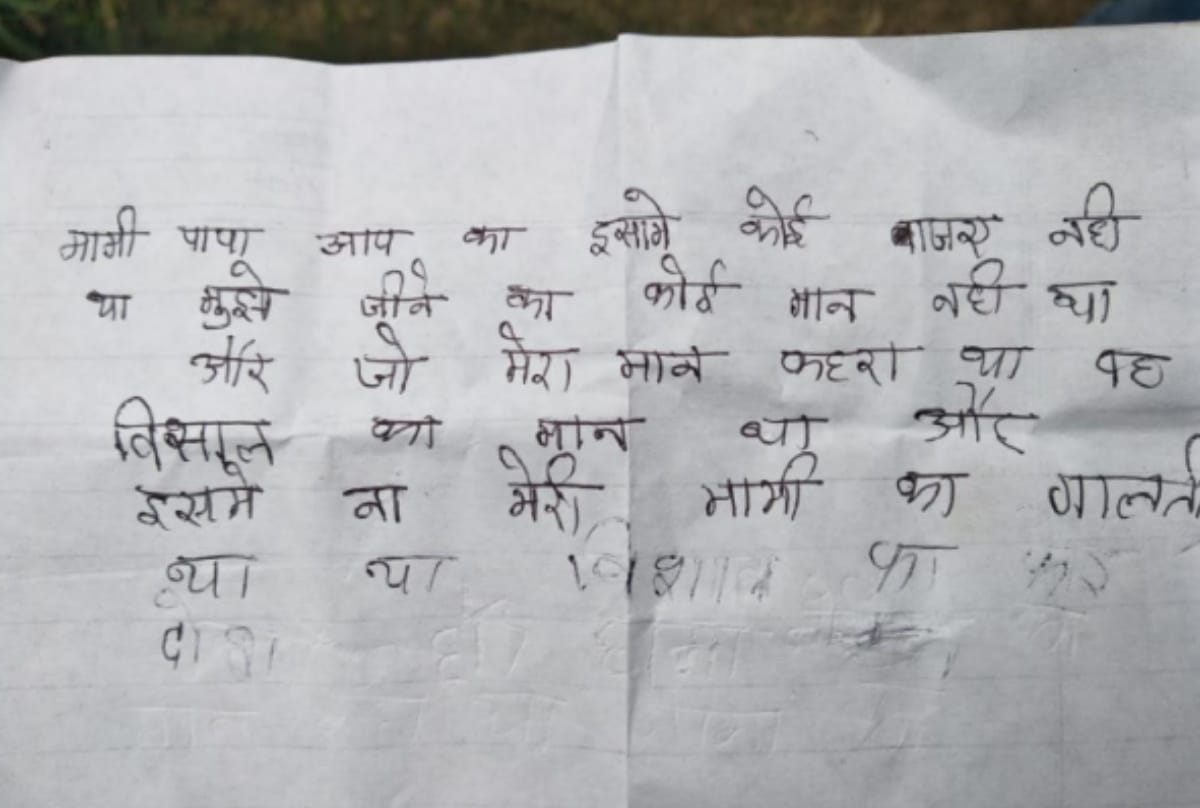 मामी पापा आप का इसामे कोई नही
था मुझे जीने का कोई मान नही था
और जो मेरा मान कहरा था वह
विसाल का मान था और
इसमे ना मेरी मामी का गालती
था या विशाल का कोइ
दोश